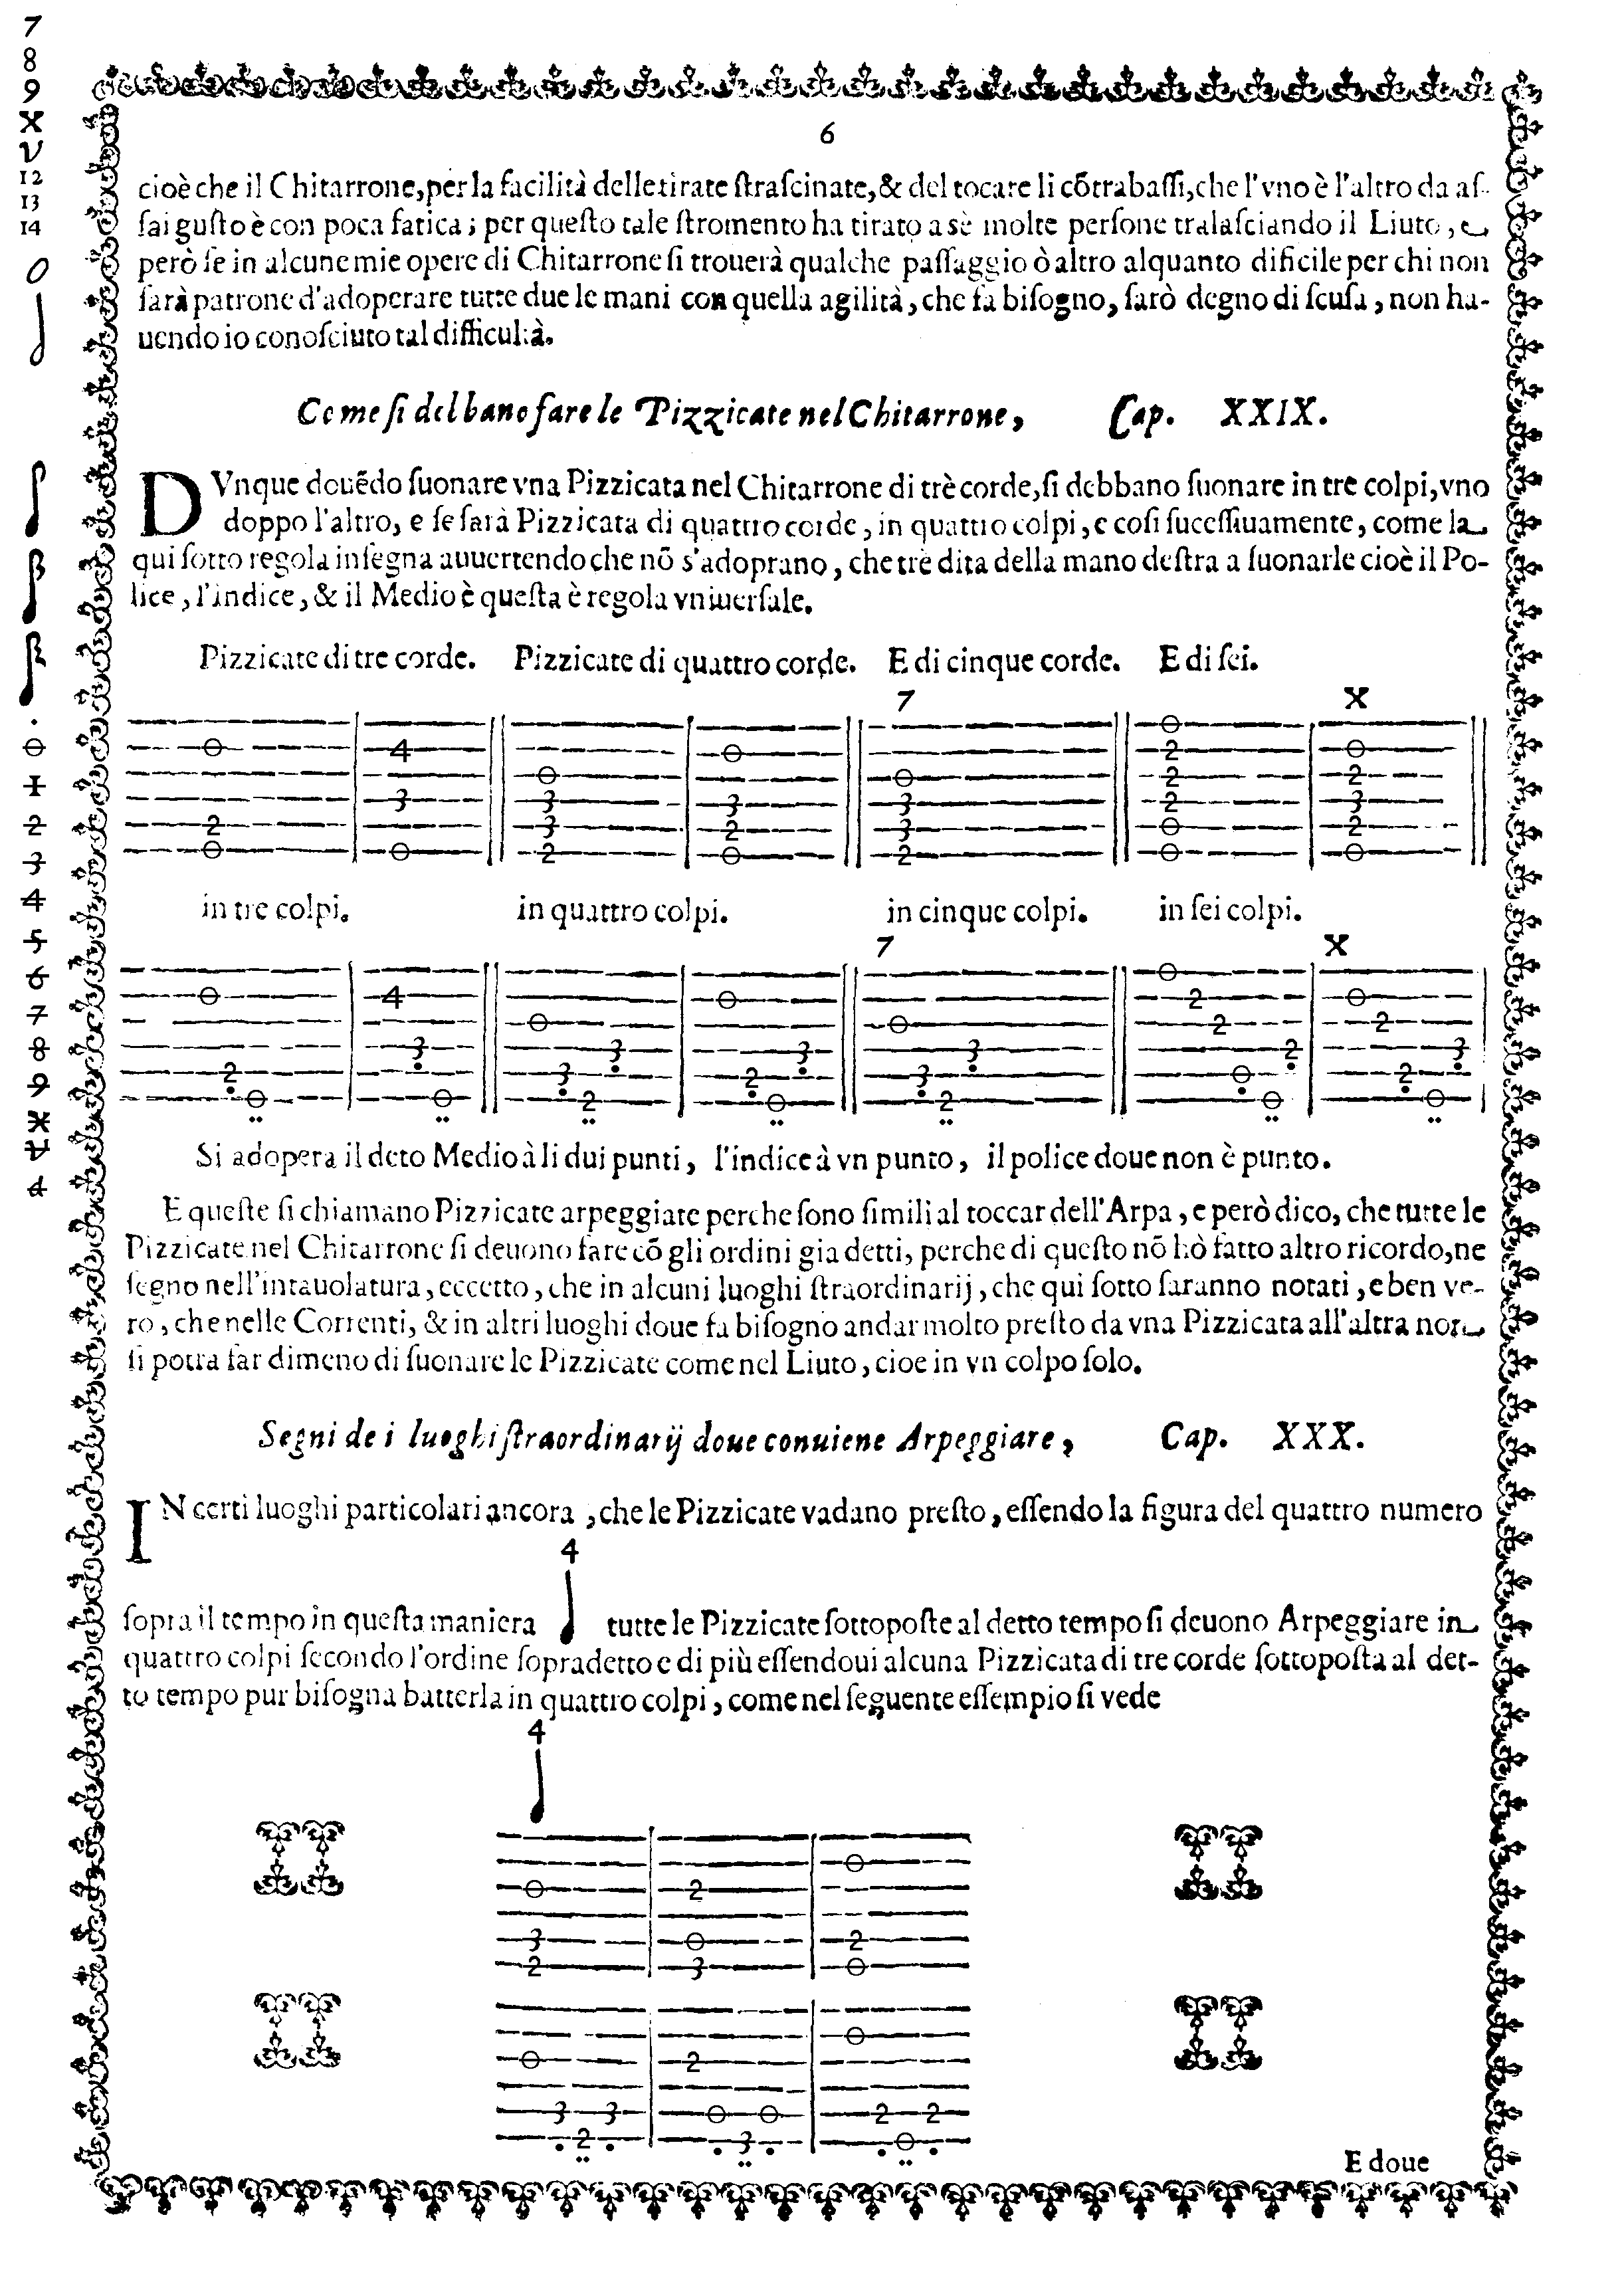 6
cioè che il Chitarrone, per la facilità delle tirate ſtraſcinate, & del tocare li cõtrabaſſi, che l'vno è l'altro da aſ-
ſai guſto è con poca fatica; per queſto tale ſtromento ha tirato a sè molte perſone tralaſciando il Liuto, e
però ſe in alcune mie opere di Chitarrone ſi trouerà qualche paſſaggio ò altro alquanto dificile per chi non
ſarà patrone d'adoperare tutte due le mani con quella agilità, che fa biſogno, ſarò degno di ſcuſa, non ha-
uendo io conoſciuto tal difficultà.
Come ſi debbano fare le Pizzicate nel Chitarrone, Cap. XXIX.
DVnque douẽdo ſuonare vna Pizzicata nel Chitarrone di trè corde, ſi debbano ſuonare in tre colpi, vno
doppo l'altro, e ſe ſarà Pizzicata di quattro corde, in quattro colpi, e coſi ſuceſſiuamente, come la
qui ſotto regola inſegna auuertendo che nõ s'adoprano, che trè dita della mano deſtra a ſuonarle cioè il Po-
lice, l'indice, & il Medio è queſta è regola vniuerſale.
Pizzicate di tre corde. Pizzicate di quattro corde. E di cinque corde. E di ſei.
7 X
0 4 0 0 0 2 0
0 2 2
3 3 3 3 2 3
2 3 2 3 0 2
0 0 2 0 2 0 0
in tre colpi. in quattro colpi. in cinque colpi. in ſei colpi.
7 X
0
0 4 0 2 0
0 0 2 2
3 3 3 3 2 3
2 3 2 3 0 2
0 0 2 0 2 0 0
Si adopera il deto Medio à li dui punti, l'indice à vn punto, il police doue non è punto.
E queſte ſi chiamano Pizzicate arpeggiate perche ſono ſimili al toccar dell'Arpa, e però dico, che tutte le
Pizzicate nel Chitarrone ſi deuono fare cõ gli ordini gia detti, perche di queſto nõ hò fatto altro ricordo, ne
ſegno nell'intauolatura, eccetto, che in alcuni luoghi ſtraordinarij, che qui ſotto ſaranno notati, e ben ve-
ro, che nelle Correnti, & in altri luoghi doue fa biſogno andar molto preſto da vna Pizzicata all'altra non
ſi potra far dimeno di ſuonare le Pizzicate come nel Liuto, cioe in vn colpo ſolo.
Segni de i luoghi ſtraordinarij doue conuiene Arpeggiare, Cap. XXX.
IN certi luoghi particolari ancora, che le Pizzicate vadano preſto, eſſendo la figura del quattro numero
4
ſopra il tempo in queſta maniera tutte le Pizzicate ſottopoſte al detto tempo ſi deuono Arpeggiare in
quattro colpi ſecondo l'ordine ſopradetto e di più eſſendoui alcuna Pizzicata di tre corde ſottopoſta al det-
to tempo pur biſogna batterla in quattro colpi, come nel ſeguente eſſempio ſi vede
4
0
0 2
3 0 2
2 3 0
0
0 2
3 3 0 0 2 2
2 3 0
E doue
7
8
9
X
V
12
13
14
0
1
2
3
4
5
6
7
8
9
X